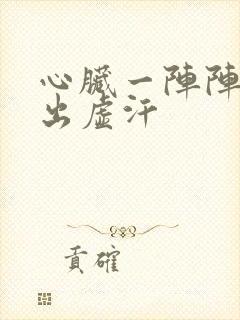 心臟一陣陣
出虛汗
貢確